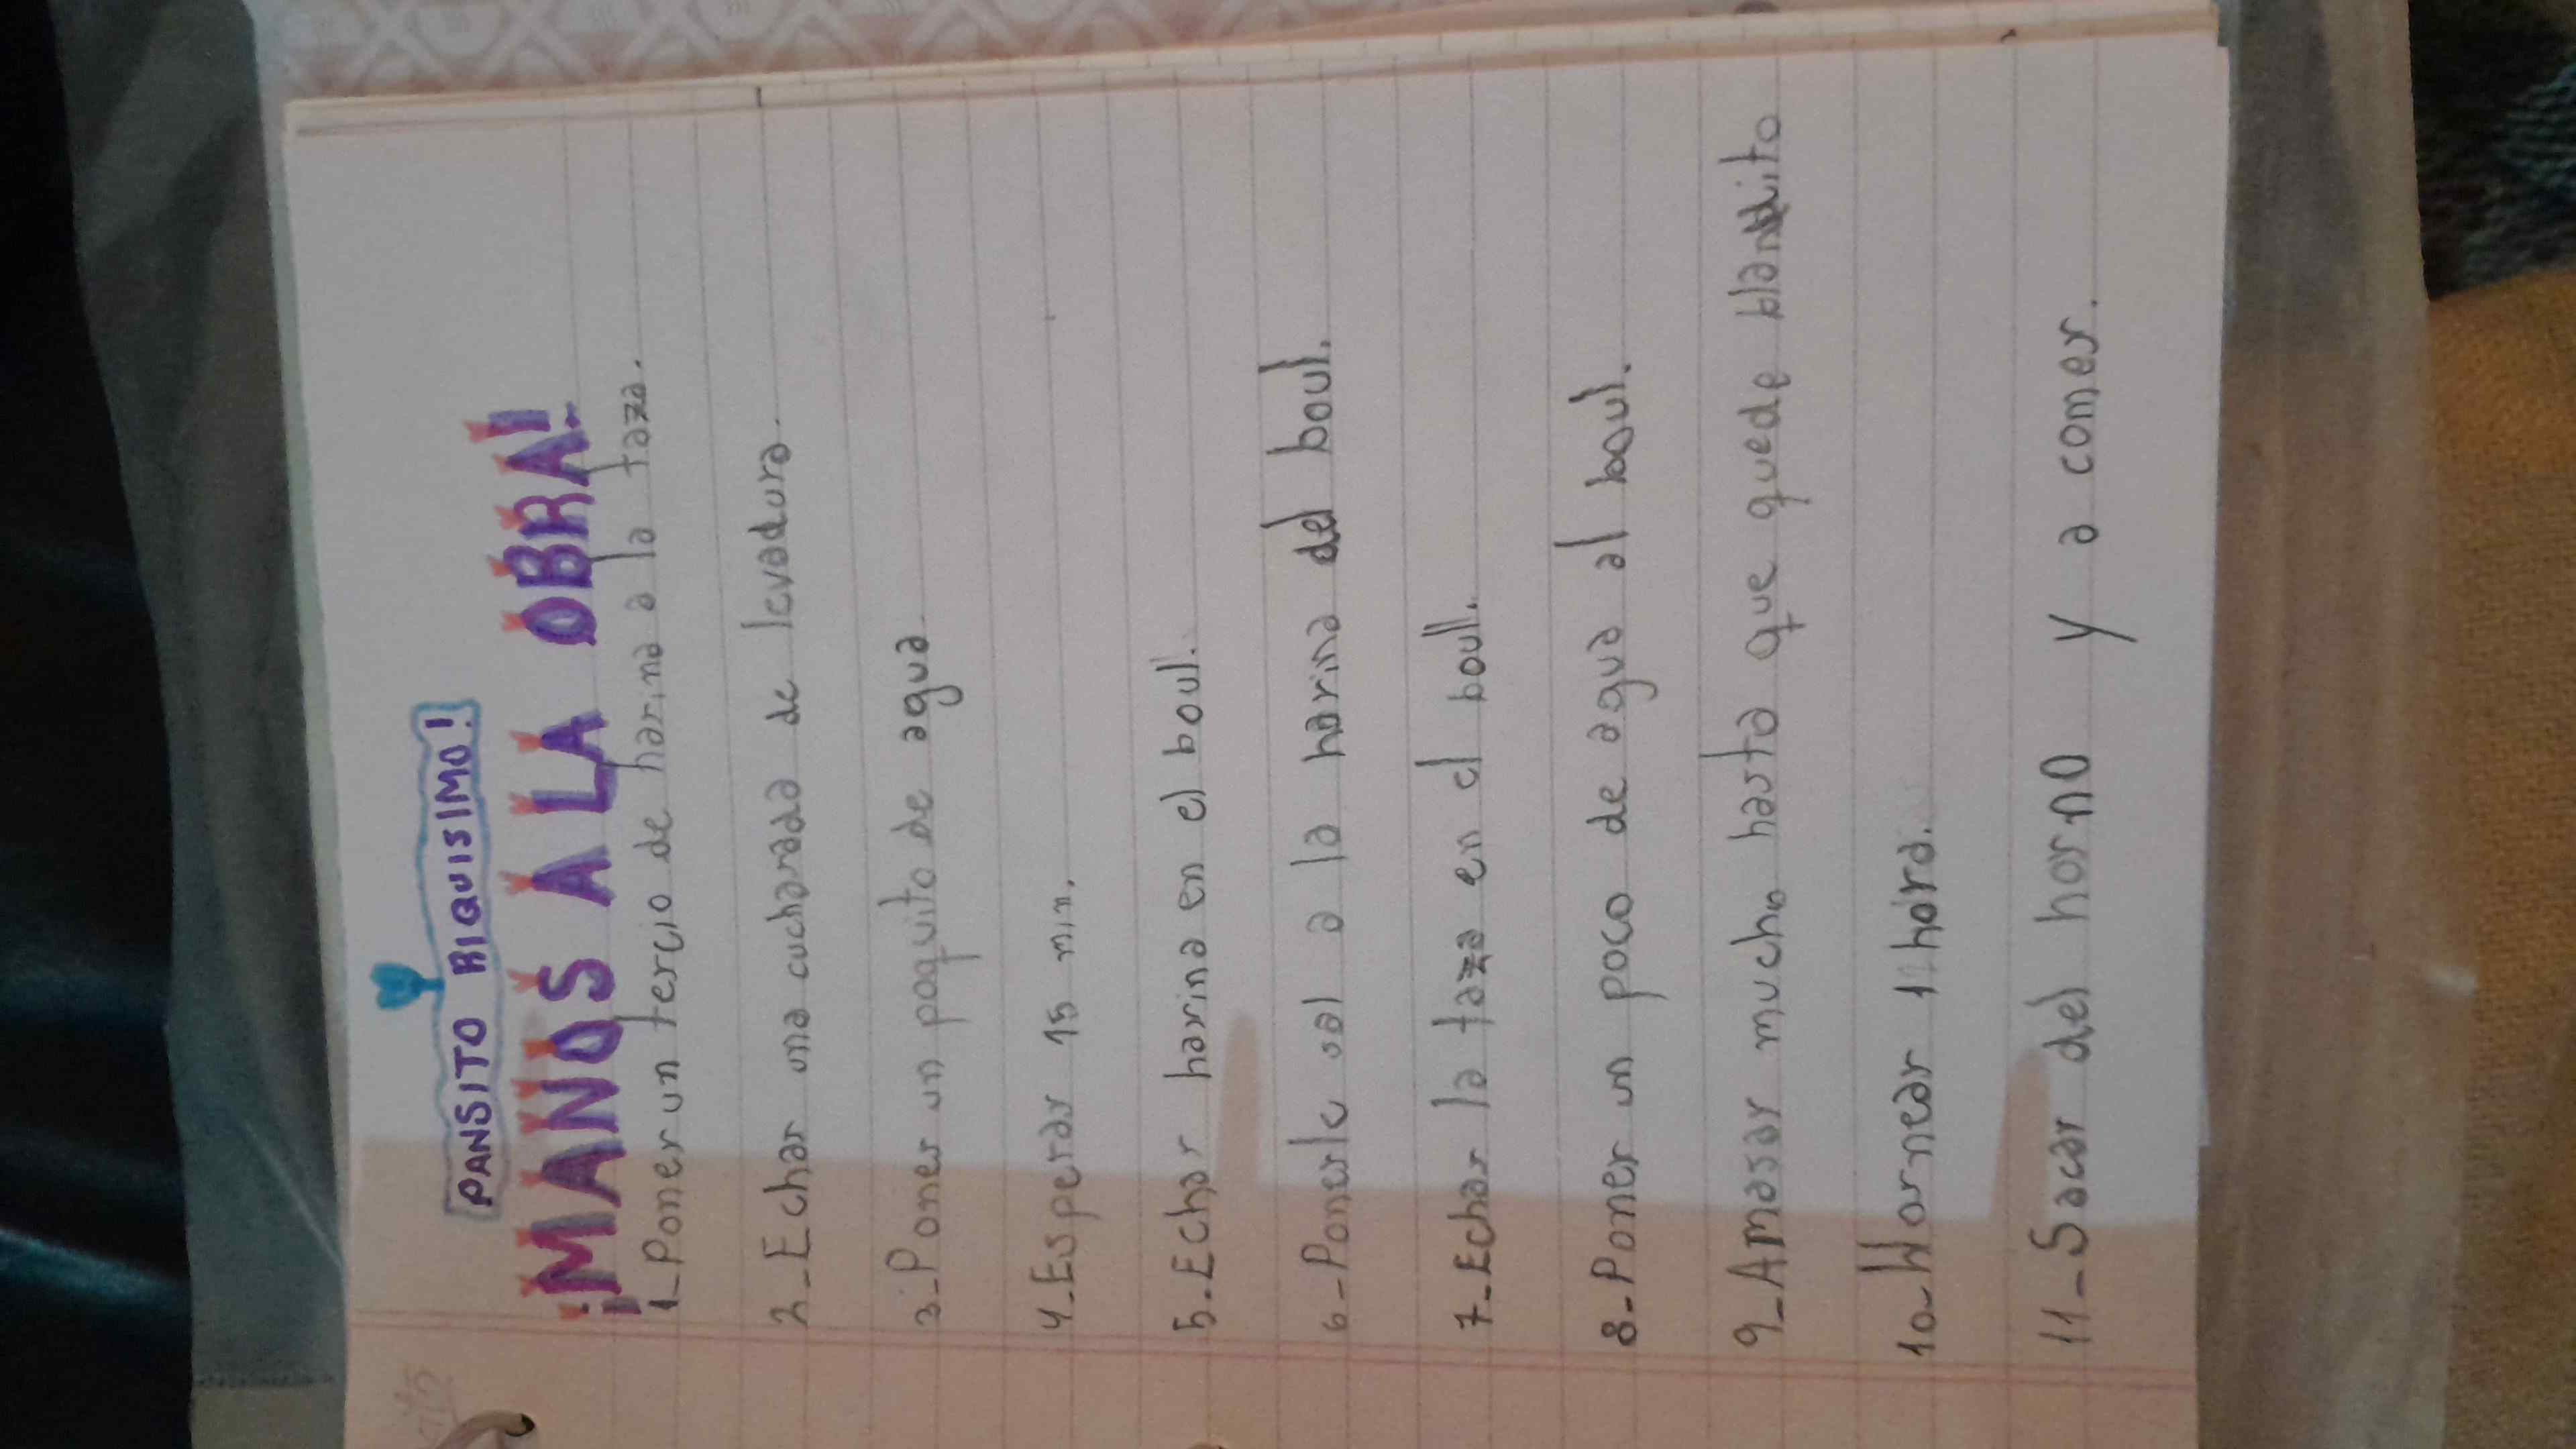 PANSITO RIQUISIMO!
¡MANOS A LA OBRA!
1_Poner un tercio de harina a la taza.
2_Echar una cucharada de levadura.
3_Poner un poquito de agua.
4_Esperar 15 min.
5_Echar harina en el boul.
6_Ponerle sal a la harina del boul.
7_Echar la taza en el boul.
8_Poner un poco de agua al boul.
9_Amasar mucho hasta que quede blandito
10_Hornear 1 hora.
11_Sacar del horno y a comer.